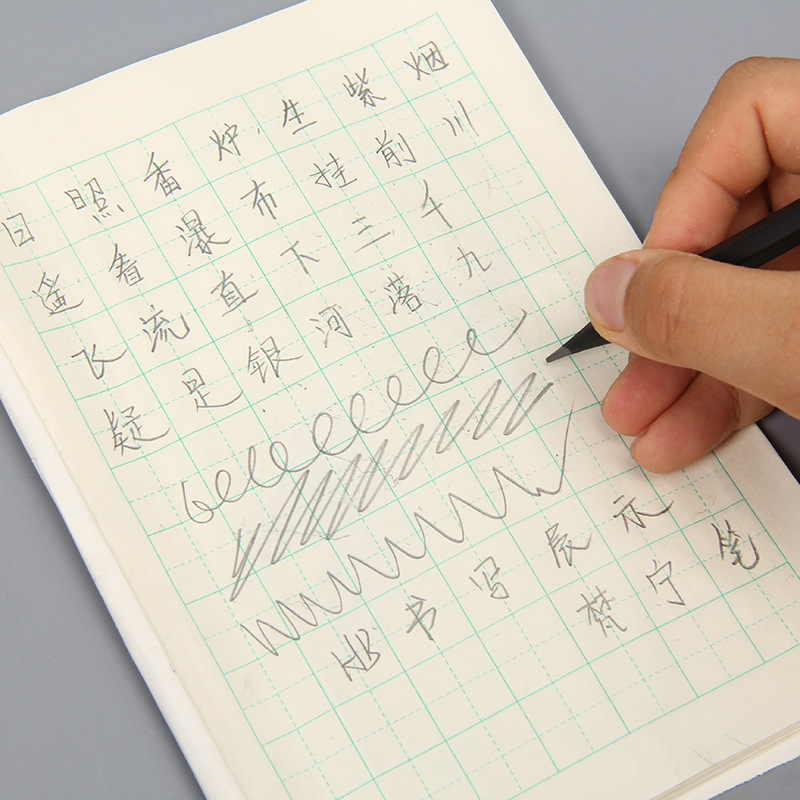 日照香炉生紫烟
遥看瀑布挂前川
飞流直下三千
疑是银河落九
HB书写展示
梵宁笔